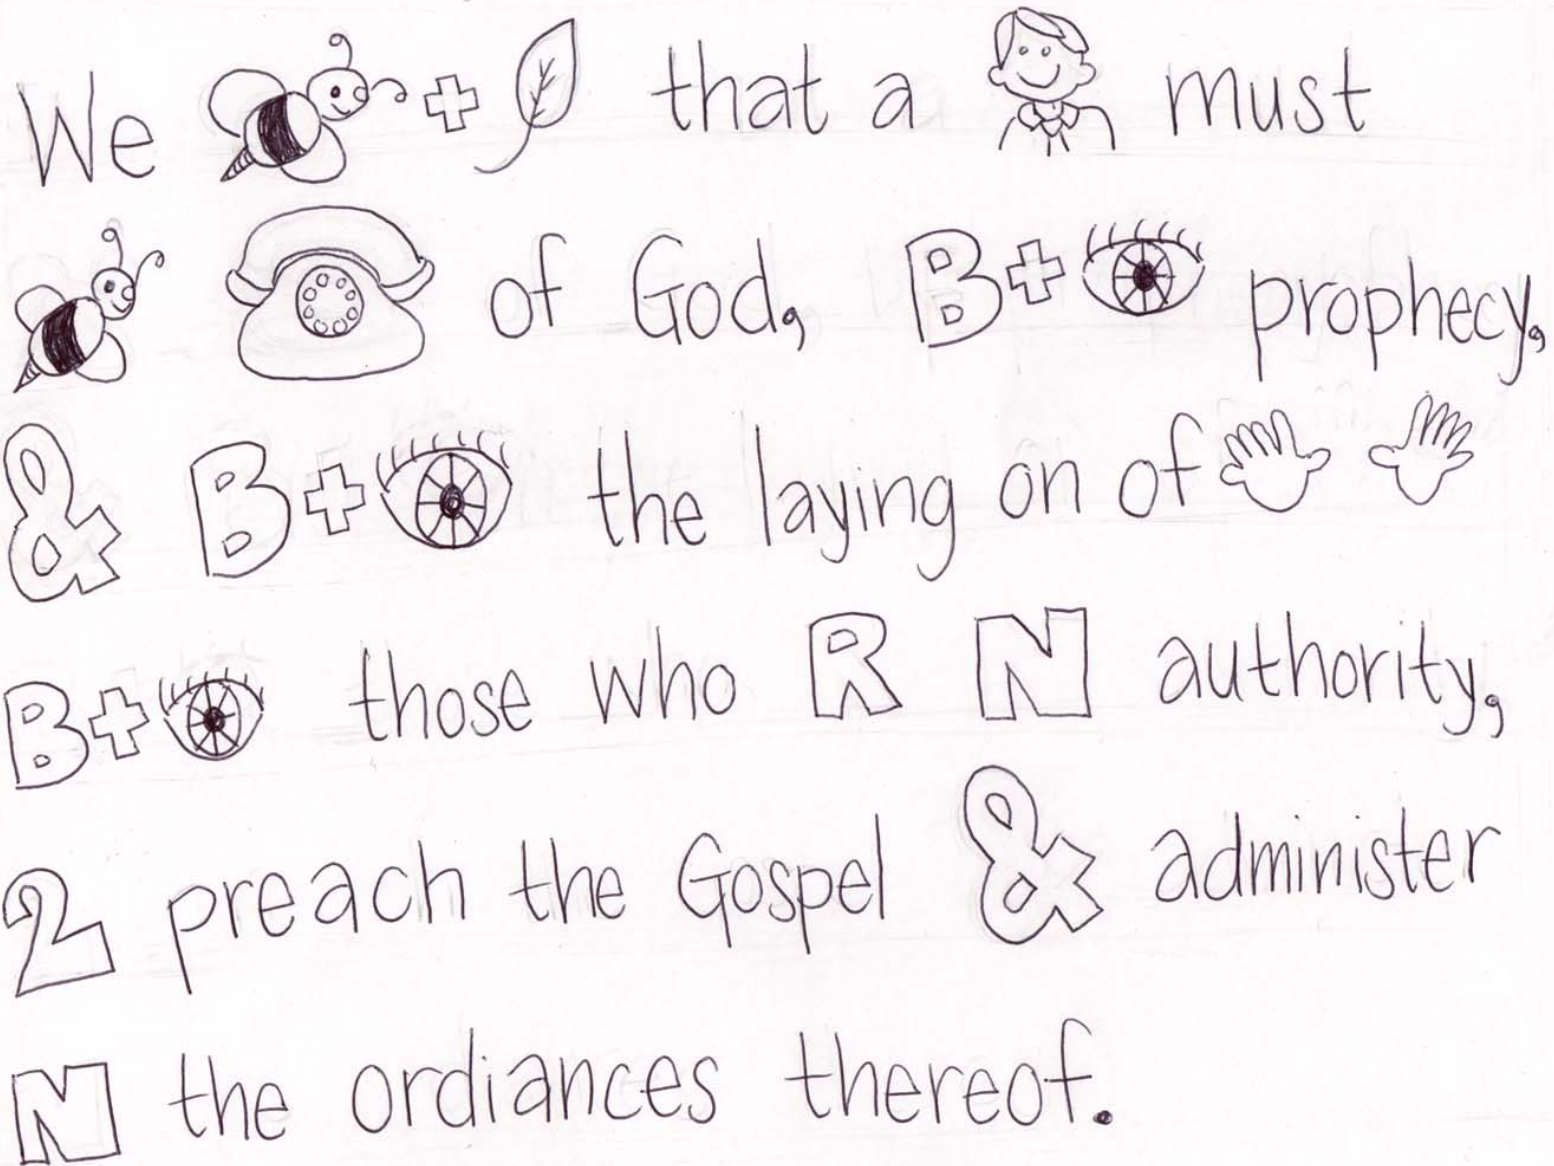 We + that a must
of God, B+ prophecy,
& B+ the laying on of
B+ those who R N authority,
2 preach the Gospel & administer
N the ordiances thereof.